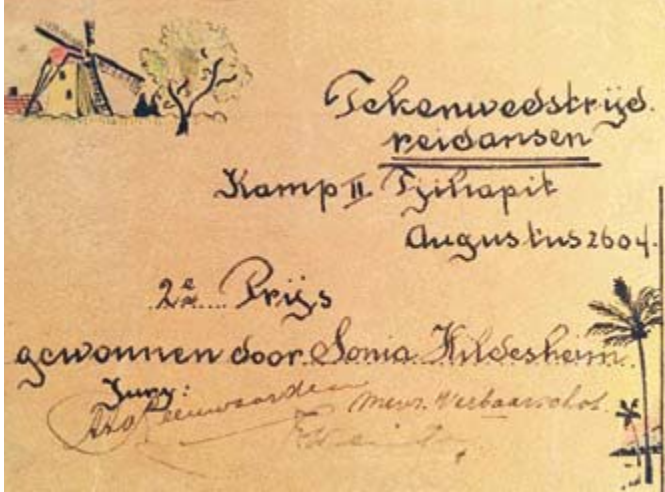 Tekenwedstrijd.
reidansen
Kamp II Tjihapit
Augustus 2604.
2e Prijs
gewonnen door Sonia Hildesheim
Jury:
Leeuwaarden Mevr. Verbaarschot.